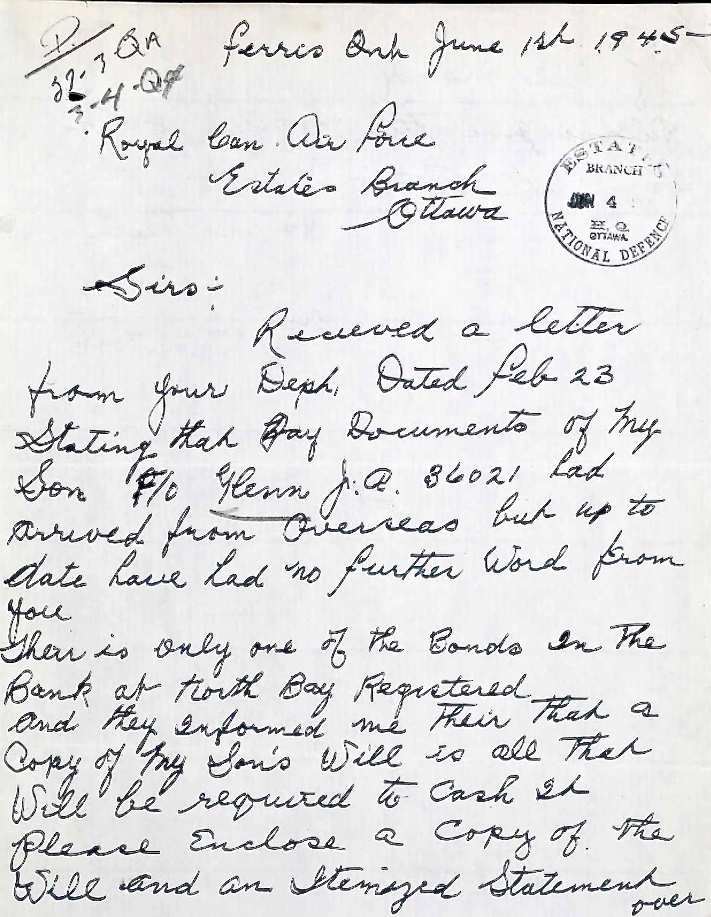 D.
32-3 QA
3-4-QA
Ferris Ont June 1st 1945
Royal Can. Air Force
Estates Branch
Ottawa
ESTATES
BRANCH
JUN 4
H.Q.
OTTAWA
NATIONAL DEFENCE
Sirs:
Recieved a letter
from your Dept. Dated Feb 23
Stating that Pay Documents of My
Son F/O Glenn J.A. 36021 had
arrived from Overseas but up to
date have had no further Word from
you
Their is only one of the Bonds In The
Bank at North Bay Registered
And they Informed me Their That a
Copy of My Son's Will is all That
Will be required to Cash It
Please Enclose a Copy of the
Will and an Itemized Statement
over